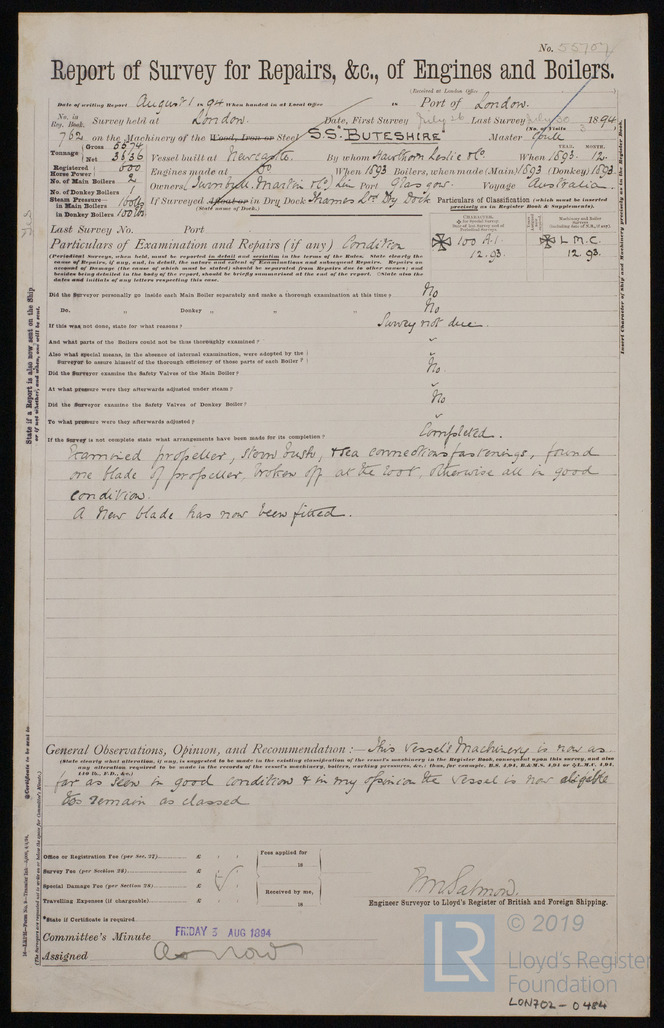 No. 55707
Report of Survey for Repairs, &c., of Engines and Boilers.
(Received at London Office
Date of writing Report August 1 1894 When handed in at Local Office 18 Port of London.
No. in Reg. Book. Survey held at London. Date, First Survey July 26 Last Survey July 30 1894
(No. of Visits 3)
762 on the Machinery of the Wood, Iron or Steel S.S. "BUTESHIRE" Master
Tonnage Gross 5574
Net 3636
Vessel built at Newcastle. By whom Hawthorn Leslie & Co. When 1893. 12.
YEAR. MONTH.
Registered Horse Power 600 Engines made at Do When 1893 Boilers, when made (Main) 1893 (Donkey) 1893
No. of Main Boilers 2
No. of Donkey Boilers 1 Owners Turnbull, Martin & Co, Port Glasgow. Voyage Australia.
Steam Pressure in Main Boilers 160 lbs
in Donkey Boilers 100 lbs
If Surveyed Afloat or in Dry Dock Thames Dry Dock
(State name of Dock.)
Particulars of Classification (which must be inserted precisely as in Register Book & Supplements).
Last Survey No. Port
100 A.1. L M.C.
12.93. 12.93.
Particulars of Examination and Repairs (if any) Condition
(Periodical Surveys, when held, must be reported in detail and seriatim in the terms of the Rules. State clearly the
cause of Repairs, if any, and, in detail, the nature and extent of Examinations and subsequent Repairs. Repairs on
account of Damage (the cause of which must be stated) should be separated from Repairs due to other causes; and
besides being detailed in the body of the report, should be briefly summarised at the end of the report.
Did the Surveyor personally go inside each Main Boiler separately and make a thorough examination at this time? No
Do. " Donkey " " " No
If this was not done, state for what reasons? Survey not due.
And what parts of the Boilers could not be thus thoroughly examined? "
Also what special means, in the absence of internal examination, were adopted by the
Surveyor to assure himself of the thorough efficiency of those parts of each Boiler? "
Did the Surveyor examine the Safety Valves of the Main Boiler? No.
At what pressure were they afterwards adjusted under steam? "
Did the Surveyor examine the Safety Valves of Donkey Boiler? No
To what pressure were they afterwards adjusted? "
If the Survey is not complete state what arrangements have been made for its completion? Completed.
Examined propeller, stern bush, & sea connections fastenings, found
one blade of propeller broken off at the root. Otherwise all in good
condition.
A new blade has now been fitted.
General Observations, Opinion, and Recommendation:— This Vessel's Machinery is now as
(State clearly what alteration, if any, is suggested to be made in the existing classification of the vessel's machinery in the Register Book, consequent upon this survey, and also
any alteration required to be made in the records of the vessel's machinery, boilers, working pressures, &c.; thus, for example, B.S. 1,94, B.&M.S. 1,94 or L.M.C. 1,94,
140 lb., F.D., &c.)
far as seen in good condition & in my opinion the vessel is now eligible
to remain as classed
Office or Registration Fee (per Sec. 27) £ : :
Survey Fee (per Section 28) £ : :
Special Damage Fee (per Section 28) £ : :
Travelling Expenses (if chargeable) £ : :
Fees applied for
18
Received by me,
18
R M Salmon.
Engineer Surveyor to Lloyd's Register of British and Foreign Shipping.
*State if Certificate is required
Committee's Minute FRIDAY 3 AUG 1894
Assigned As now
State if a Report is also now sent on the Ship
or if not whether, and when, one will be sent.
Insert Character of Ship and Machinery precisely as in the Register Book.
LR
© 2019
Lloyd's Register
Foundation
LON702-0484